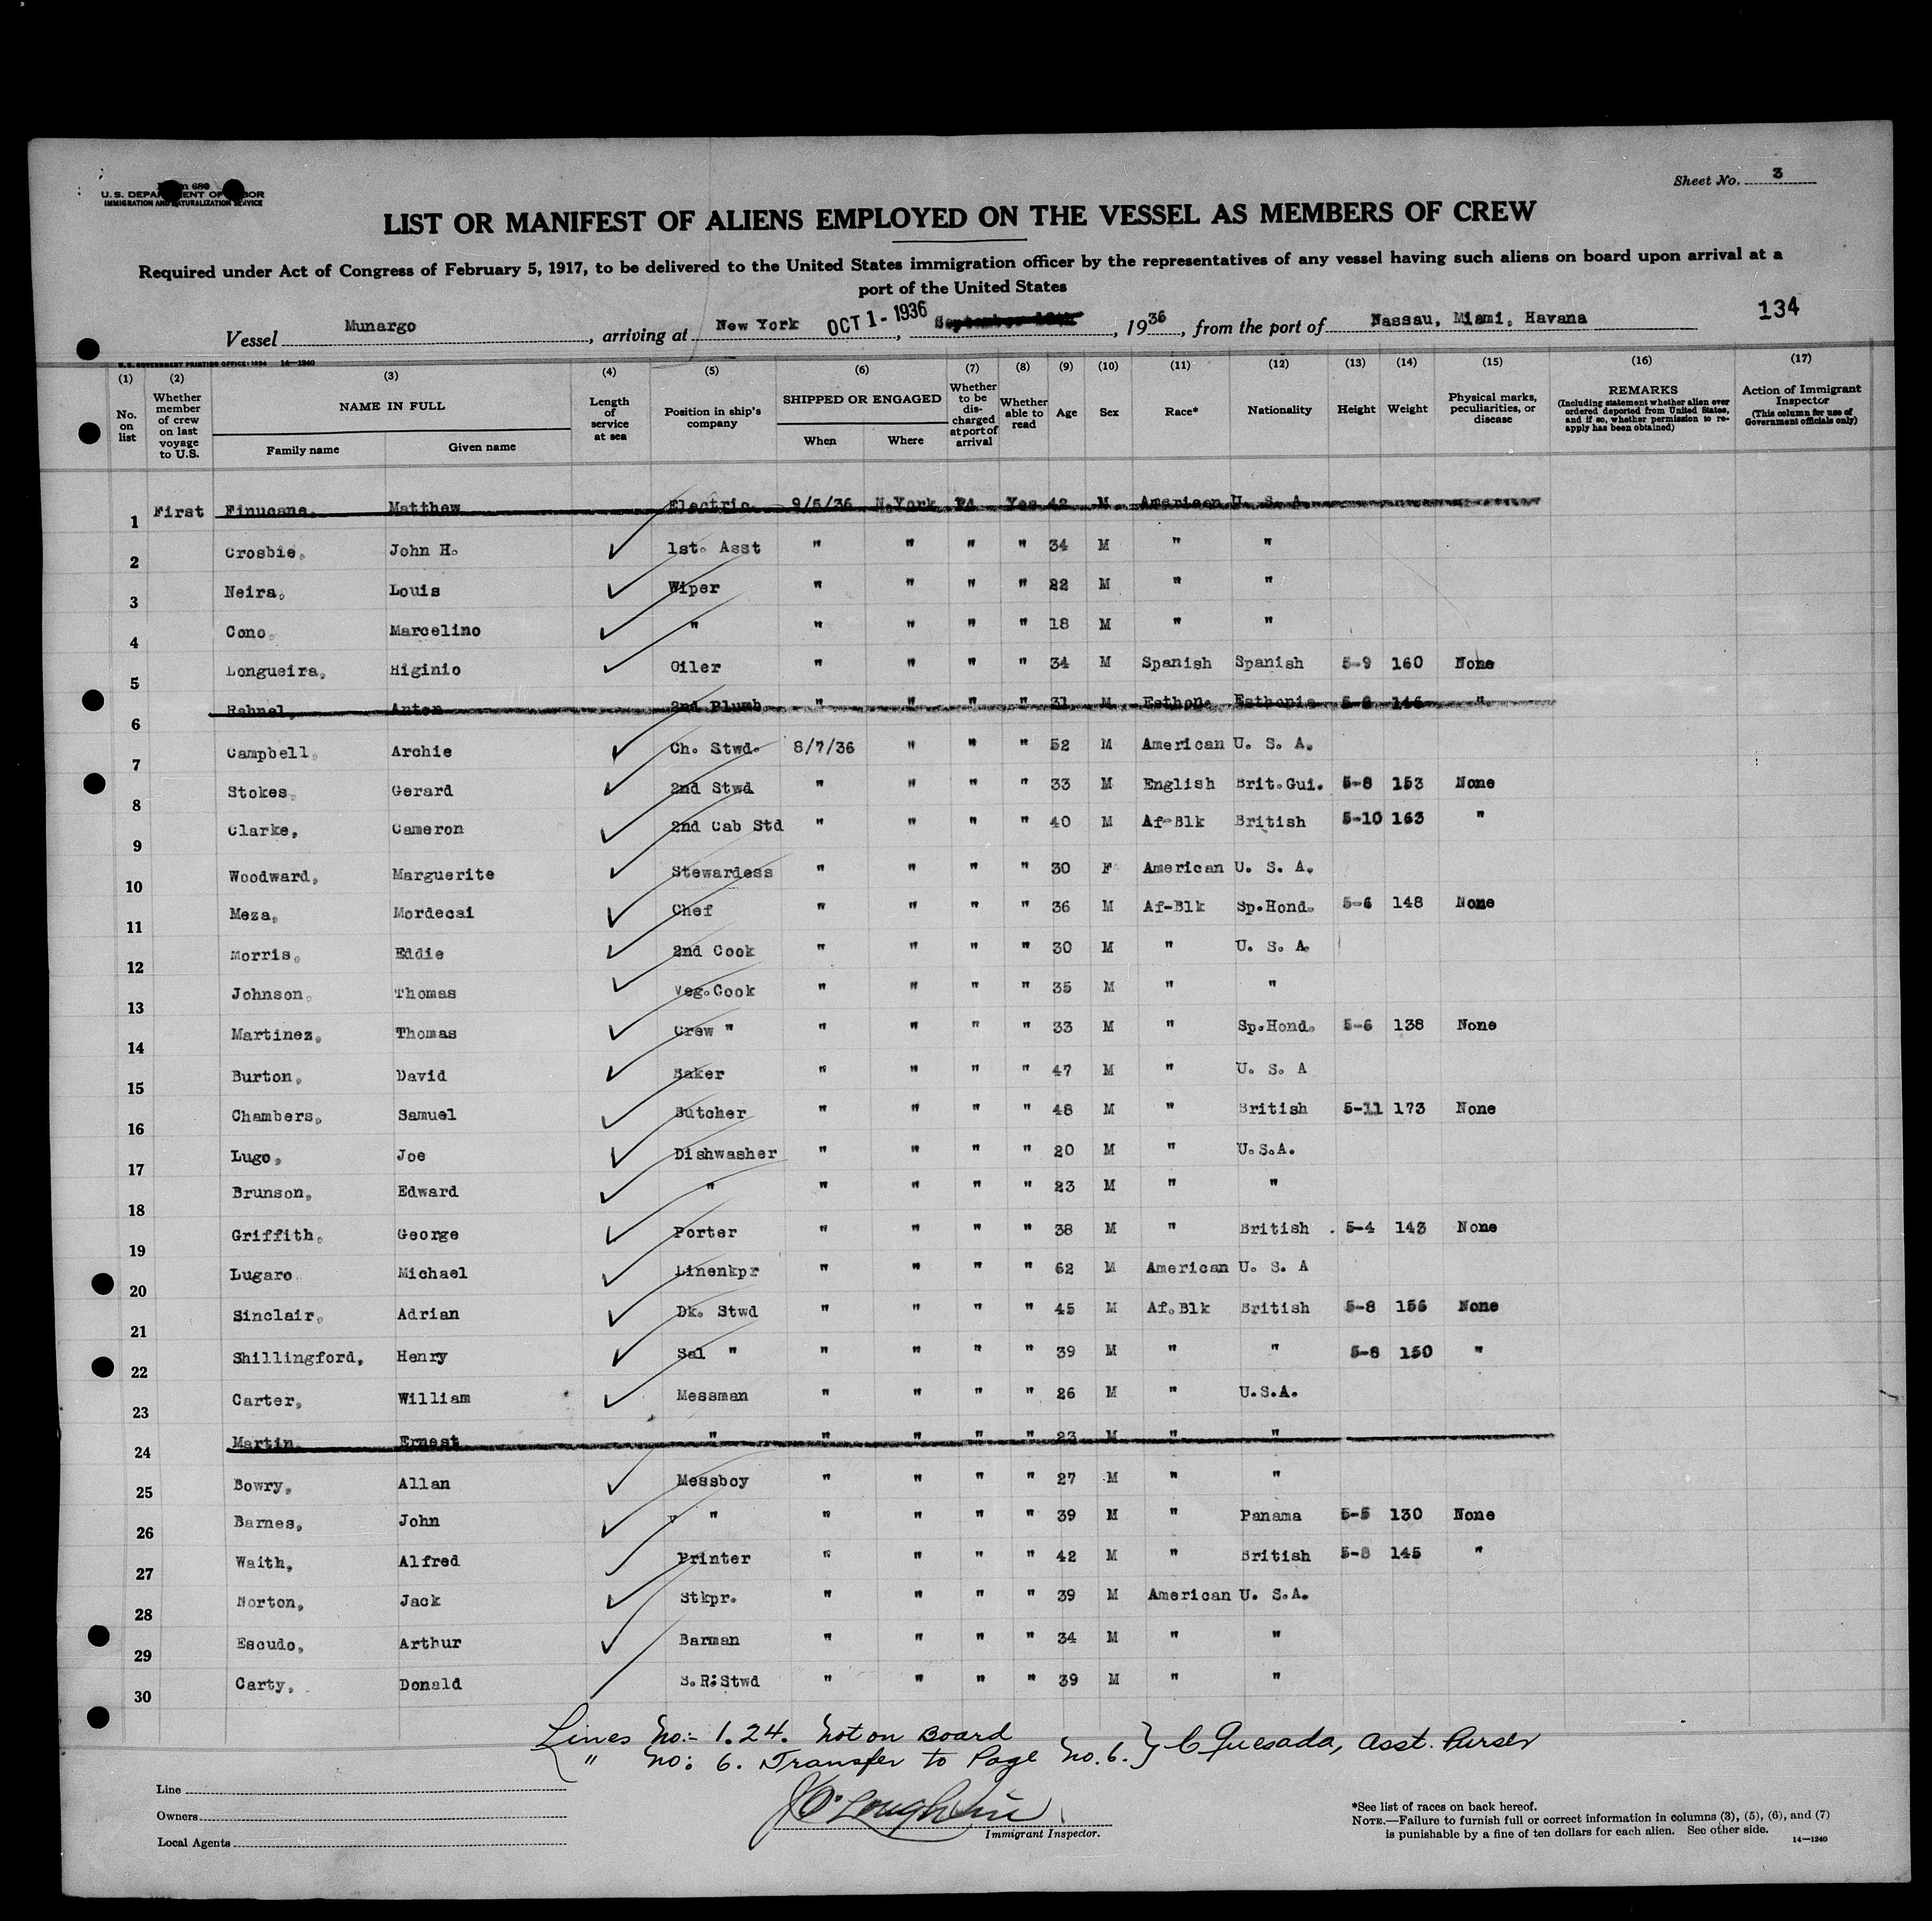 Sheet No. 3
Form 680
U. S. DEPARTMENT OF LABOR
IMMIGRATION AND NATURALIZATION SERVICE
LIST OR MANIFEST OF ALIENS EMPLOYED ON THE VESSEL AS MEMBERS OF CREW
Required under Act of Congress of February 5, 1917, to be delivered to the United States immigration officer by the representatives of any vessel having such aliens on board upon arrival at a
port of the United States
134
Vessel Munargo, arriving at New York OCT 1 - 1936, September, 1936, from the port of Nassau, Miami, Havana
U. S. GOVERNMENT PRINTING OFFICE: 1934 14—1240
(1) (2) (3) (4) (5) (6) (7) (8) (9) (10) (11) (12) (13) (14) (15) (16) (17)
No. on list
Whether member of crew on last voyage to U.S.
NAME IN FULL
Family name Given name
Length of service at sea
Position in ship's company
SHIPPED OR ENGAGED
When Where
Whether to be discharged at port of arrival
Whether able to read
Age Sex Race* Nationality Height Weight
Physical marks, peculiarities, or disease
REMARKS
(Including statement whether alien ever ordered deported from United States, and if so, whether permission to reapply has been obtained)
Action of Immigrant Inspector
(This column for use of Government officials only)
1 First Finucane, Matthew Electric 9/5/36 N.York PA Yes 42 M American U. S. A.
2 Crosbie, John H. 1st. Asst " " " " 34 M " "
3 Neira, Louis Wiper " " " " 22 M " "
4 Cono, Marcelino " " " " " 18 M " "
5 Longueira, Higinio Oiler " " " " 34 M Spanish Spanish 5-9 160 None
6 Rahnel, Anton 2nd Plumb " " " " 31 M Esthon. Esthonia 5-8 146 "
7 Campbell, Archie Ch. Stwd. 8/7/36 " " " 52 M American U. S. A.
8 Stokes, Gerard 2nd Stwd " " " " 33 M English Brit.Gui. 5-8 153 None
9 Clarke, Cameron 2nd Cab Std " " " " 40 M Af-Blk British 5-10 163 "
10 Woodward, Marguerite Stewardess " " " " 30 F American U. S. A.
11 Meza, Mordecai Chef " " " " 36 M Af-Blk Sp.Hond. 5-6 148 None
12 Morris, Eddie 2nd Cook " " " " 30 M " U. S. A.
13 Johnson, Thomas Veg.Cook " " " " 35 M " "
14 Martinez, Thomas Crew " " " " " 33 M " Sp.Hond. 5-6 138 None
15 Burton, David Baker " " " " 47 M " U. S. A
16 Chambers, Samuel Butcher " " " " 48 M " British 5-11 173 None
17 Lugo, Joe Dishwasher " " " " 20 M " U.S.A.
18 Brunson, Edward " " " " " 23 M " "
19 Griffith, George Porter " " " " 38 M " British 5-4 143 None
20 Lugaro Michael Linenkpr " " " " 62 M American U. S. A
21 Sinclair, Adrian Dk. Stwd " " " " 45 M Af.Blk British 5-8 156 None
22 Shillingford, Henry Sal " " " " " 39 M " " 5-8 150 "
23 Carter, William Messman " " " " 26 M " U.S.A.
24 Martin Ernest " " " " " 23 M " "
25 Bowry, Allan Messboy " " " " 27 M " "
26 Barnes, John " " " " " 39 M " Panama 5-5 130 None
27 Waith, Alfred Printer " " " " 42 M " British 5-8 145 "
28 Norton, Jack Stkpr. " " " " 39 M American U. S.A.
29 Escudo, Arthur Barman " " " " 34 M " "
30 Carty, Donald S.R. Stwd " " " " 39 M " "
Lines No:- 1.24. Not on Board
" No: 6. Transfer to Page No. 6. } C Quesada, Asst. Purser
Line
Owners
Local Agents
J O'Loughlin
Immigrant Inspector.
*See list of races on back hereof.
NOTE.—Failure to furnish full or correct information in columns (3), (5), (6), and (7)
is punishable by a fine of ten dollars for each alien. See other side.
14—1240